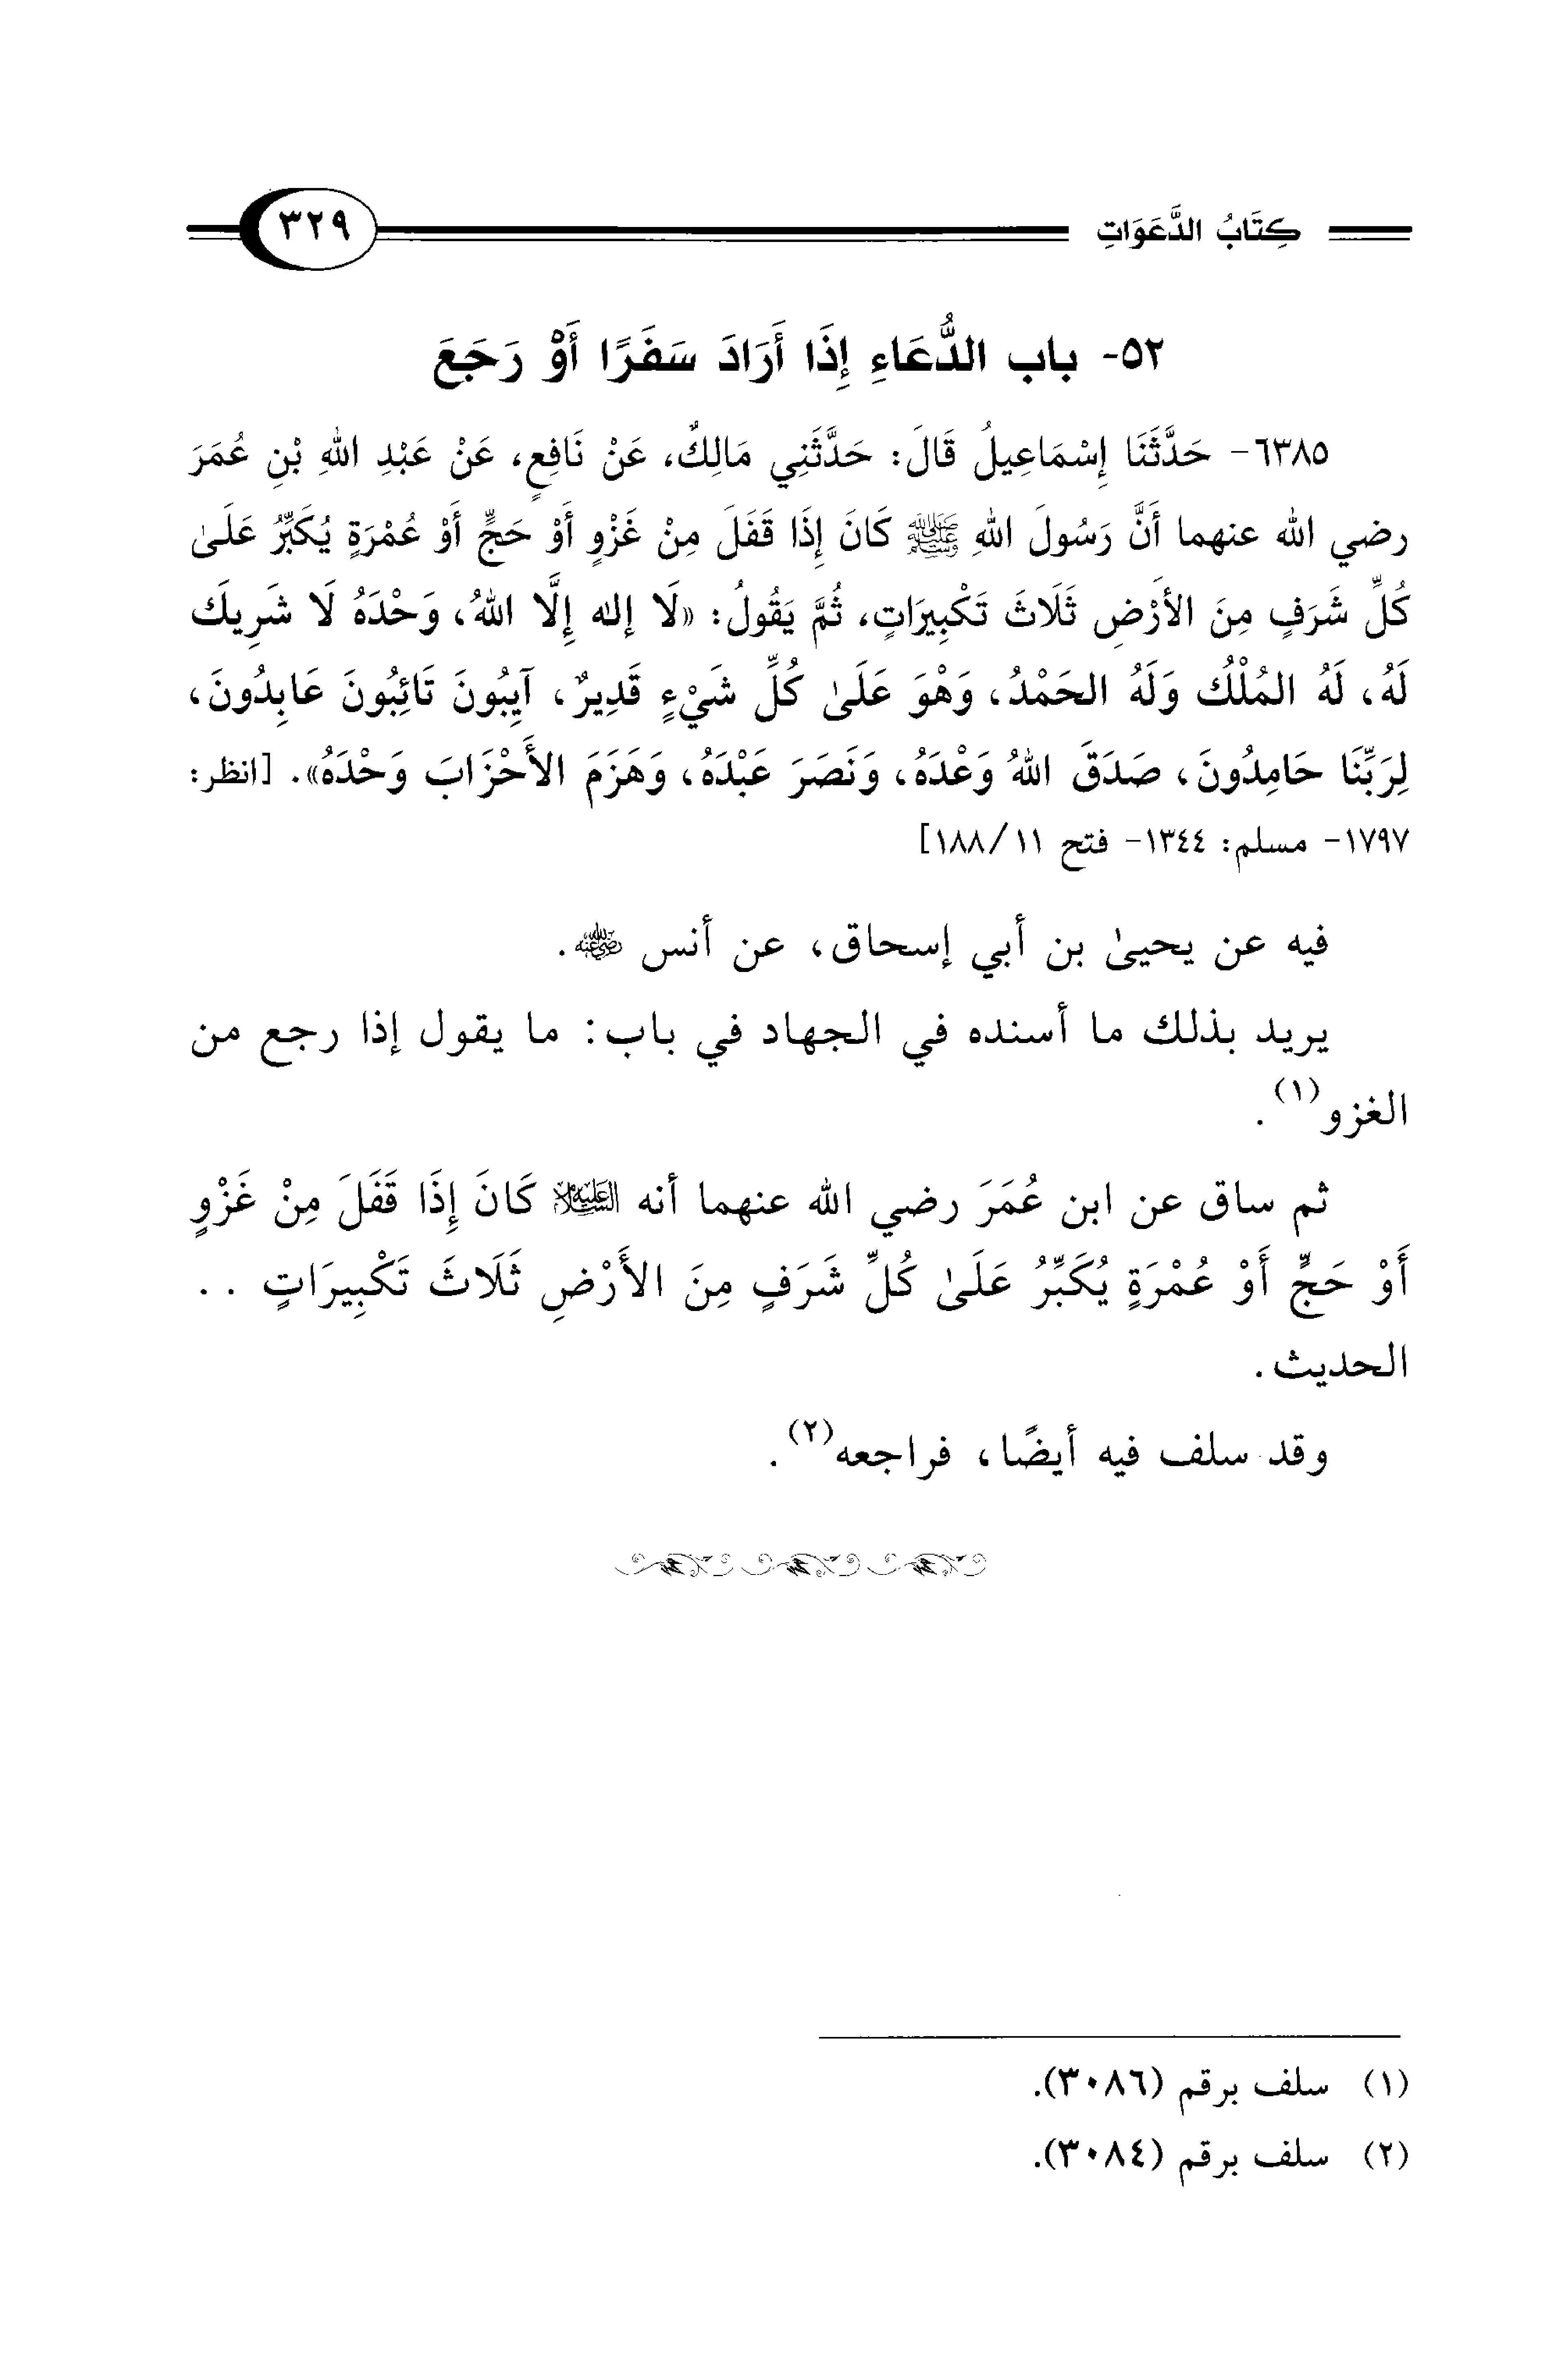 كِتَابُ الدَّعَوَاتِ ٣٢٩
٥٢- باب الدُّعَاءِ إِذَا أَرَادَ سَفَرًا أَوْ رَجَعَ
٦٣٨٥- حَدَّثَنَا إِسْمَاعِيلُ قَالَ: حَدَّثَنِي مَالِكٌ، عَنْ نَافِعٍ، عَنْ عَبْدِ اللهِ بْنِ عُمَرَ
رضي الله عنهما أَنَّ رَسُولَ اللهِ ﷺ كَانَ إِذَا قَفَلَ مِنْ غَزْوٍ أَوْ حَجٍّ أَوْ عُمْرَةٍ يُكَبِّرُ عَلَىٰ
كُلِّ شَرَفٍ مِنَ الأَرْضِ ثَلَاثَ تَكْبِيرَاتٍ، ثُمَّ يَقُولُ: «لَا إله إِلَّا اللهُ، وَحْدَهُ لَا شَرِيكَ
لَهُ، لَهُ المُلْكُ وَلَهُ الحَمْدُ، وَهْوَ عَلَىٰ كُلِّ شَيْءٍ قَدِيرٌ، آيِبُونَ تَائِبُونَ عَابِدُونَ،
لِرَبِّنَا حَامِدُونَ، صَدَقَ اللهُ وَعْدَهُ، وَنَصَرَ عَبْدَهُ، وَهَزَمَ الأَحْزَابَ وَحْدَهُ». [انظر:
١٧٩٧- مسلم: ١٣٤٤- فتح ١١/ ١٨٨]
فيه عن يحيىٰ بن أبي إسحاق، عن أنس رضي الله عنه.
يريد بذلك ما أسنده في الجهاد في باب: ما يقول إذا رجع من
الغزو(١).
ثم ساق عن ابن عُمَرَ رضي الله عنهما أنه عليه السلام كَانَ إِذَا قَفَلَ مِنْ غَزْوٍ
أَوْ حَجٍّ أَوْ عُمْرَةٍ يُكَبِّرُ عَلَىٰ كُلِّ شَرَفٍ مِنَ الأَرْضِ ثَلَاثَ تَكْبِيرَاتٍ . .
الحديث.
وقد سلف فيه أيضًا، فراجعه(٢).
(١) سلف برقم (٣٠٨٦).
(٢) سلف برقم (٣٠٨٤).